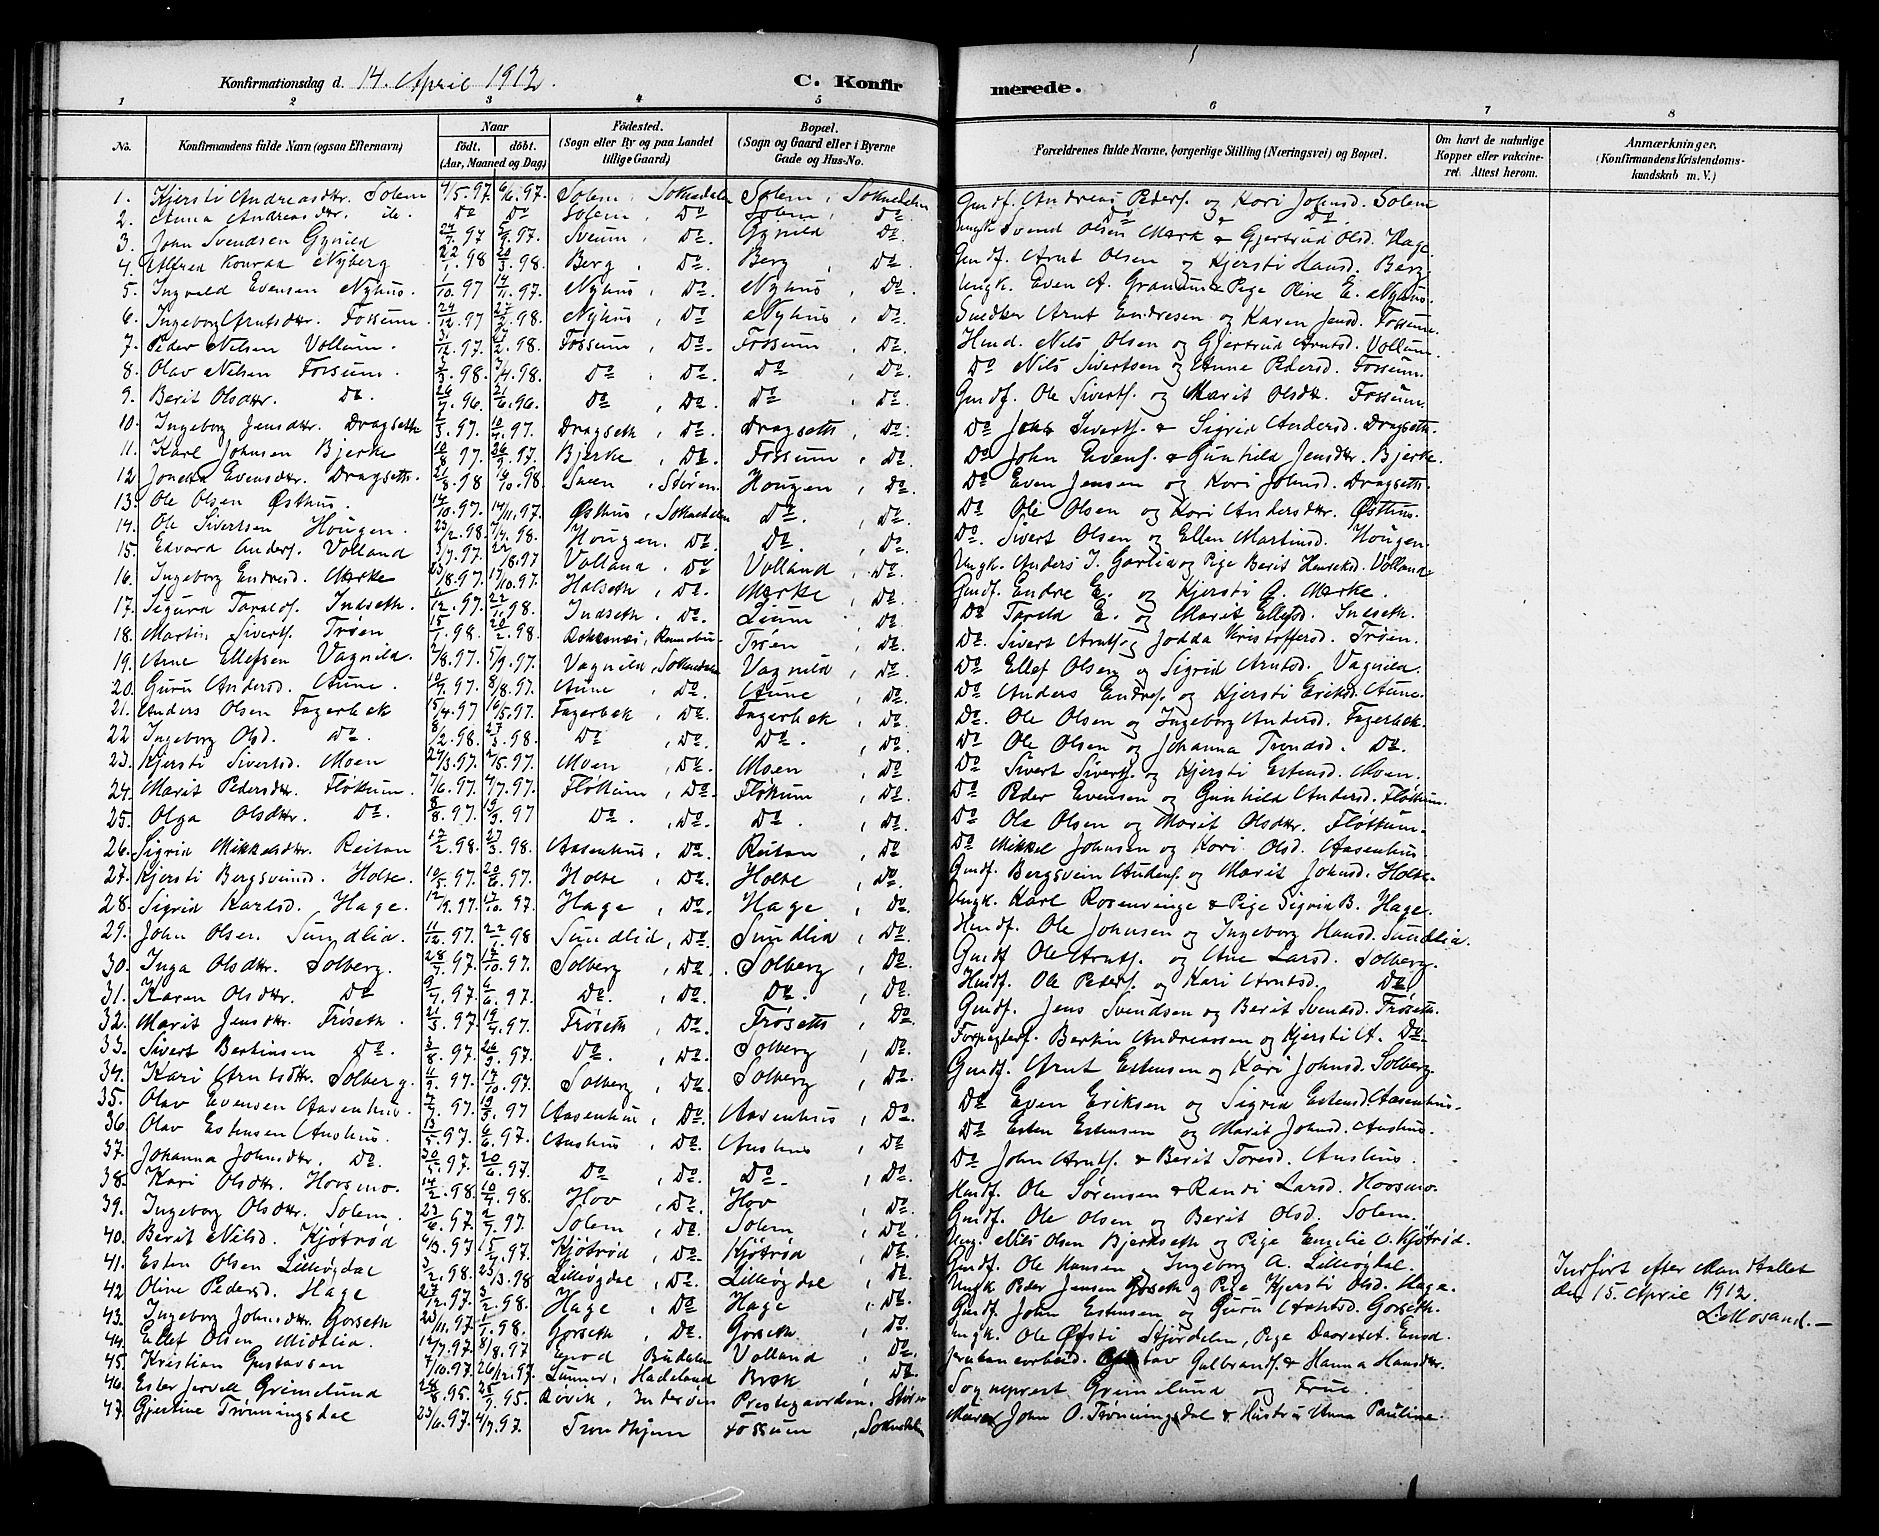 Konfirmationsdag d. 14. April 1912. C. Konfir merede.
1 2 3 4 5 6 7 8
No. Konfirmandens fulde Navn (ogsaa Efternavn) Naar født. døbt. (Aar, Maaned og Dag) Fødested. (Sogn eller By og paa Landet tillige Gaard) Bopæl. (Sogn og Gaard eller i Byerne Gade og Hus-No. Forældrenes fulde Navne, borgerlige Stilling (Næringsvei) og Bopæl. Om havt de naturlige Kopper eller vakcineret. Attest herom. Anmærkninger, (Konfirmandens Kristendomskundskab m. V.)
1. Kjersti Andreasdtr. Solem 4/5.97. 6/6.97. Solem, Soknedalen Solem, Soknedalen Gmdf. Andreas Peders. og Kari Johnsd. Solem
2. Anna Andreasdtr. do. Do Do Solem, Do Solem, Do. Do Do
3. John Svendsen Gynild 24/7.97 5/9.97. Sveum, Do. Gynild Do. Ungk. Svend Olsen Mærk & Gjertrud Olsd. Hage.
4. Alfred Konrad Nyberg 22/1.98 20/3.98. Berg, Do. Berg, Do. Gmdf. Arnt Olsen og Kjersti Hansd. Berg.
5. Ingvald Evensen Nyhus. /10.97 14/11.97. Nyhus, Do. Nyhus, Do. Ungk. Even A. Granmo & Pige Oline E. Nyhus.
6. Ingeborg Arntsdtr. Fossum. 24/12.97 27/2.98. Nyhus, Do Nyhus, Do. Snedker Arnt Endresen og Karen Jensd. Fossum.
7. Peder Nilsen Vollum. 31/12.97. /2.98. Fossum, Do. Fossum, Do. Hmd. Nils Olsen og Gjertrud Arntsd. Vollum.
8. Olav Nilsen Fossum. /3.98. 3/4.98. Do, Do. Do, Do. Do Nils Sivertsen og Anne Pedersd. Fossum.
9. Berit Olsdtr. Do. 26/4.96. 21/6.96. Do, Do. Do, Do. Gmdf. Ole Siverts. og Marit Olsdtr. Fossum.
10. Ingeborg Jensdtr. Dragseth /3.97. 10/4.97. Dragseth, Do. Dragseth, Do. Do Jens Siverts. & Sigrid Andersd. Dragseth.
11. Karl Johnsen Bjerke 10/8.97. 26/9.97. Bjerke, Do. Fossum, Do. Do John Evens. & Gunhild Jensdtr. Bjerke.
12 Jonetta Evensdtr. Dragseth. /8.98 16/10.98. Støren Hougen, Do. Do. Even Jensen og Kari Johnsd. Dragseth.
13. Ole Olsen Østhus. 14/10.97. 14/11.97. Østhus, Soknedalen Do., Do. Do Ole Olsen og Kari Andersdtr. Østhus.
14. Ole Sivertsen Hougen. 23/2.98. 7/4.98. Hougen. Do. Do., Do. Do. Sivert Olsen og Ellen Martinsd. Hougen.
15. Edvard Anders. Volland 3/7.97. 22/8.97 Volland, Do. Volland, Do. Ungk. Anders J. Garlia og Pige Berit Henriksd. Volland
16. Ingeborg Endresd. Mærke 23/8.97. 17/10.97. Halseth, Do. Mærke, Do. Gmdf. Endre E. og Kjersti A. Mærke.
17. Sigurd Taralds. Indseth. /12.97. 22/1.98. Indseth, Do. Lium, Do. Do Tarald E. og Marit Ellefsd. Indseth.
18. Martin Siverts. Trøen 15/1.98. 20/2.98. Rennebu. Trøen, Do. Do. Sivert Arnts. og Jodda Kristoffersd. Trøen.
19. Arne Ellefsen Vagnild. 2/8.97. 5/9.97. Vagnild, Soknedalen Vagnild, Do. Do Ellef Olsen og Sigrid Arntsd. Vagnild.
20. Guru Andersd. Aune. 10/7.97. 8/8.97. Aune, Do. Aune, Do. Do Anders Endres. og Kjersti Eriksd. Aune.
21. Anders Olsen Fagerbek 15/4.97 16/5.97. Fagerbek, Do. Fagerbek, Do. Do. Ole Olsen og Ingeborg Andersd. Fagerbek.
22 Ingeborg Olsd. Do. 8/2.98. 27/3.98. Do, Do. Do., Do. Do Ole Olsen og Johanna Trondsd. Do.
23. Kjersti Sivertsd. Moen 27/3.97. 2/5.97. Moen, Do. Moen, Do. Do Sivert Siverts. og Kjersti Estensd. Moen.
24. Marit Pedersdtr. Fløttum. 7/6.97. 4/7.97. Fløttum, Do. Fløttum, Do. Do Peder Evensen og Gunhild Andersd. Fløttum.
25. Olga Olsdtr. Do. 8/8.97. 19/9.97 Do., Do. Do., Do. Do Ole Olsen og Marit Olsdtr. Fløttum.
26. Sigrid Mikkelsdtr. Reitan 12/2.98. 27/3.98. Aasenhus, Do. Reitan, Do Do Mikkel Johnsen og Kari Olsd. Aasenhus.
27. Kjersti Bergsveind. Holte. 10/5.97. 20/6.97. Holte, Do. Holte, Do. Gmdf. Bergsvein Anders. og Marit Johnsd. Holte.
28. Sigrid Karlsd. Hage. 12/9.97. 17/10.97. Hage, Do. Hage, Do. Ungk. Karl Rosenvinge & Pige Sigrid B. Hage.
29. John Olsen Sundlia. 11/12.97. 22/1.98 Sundlid, Do. Sundlia, Do. Hmdf. Ole Johnsen og Ingeborg Hansd. Sundlia.
30. Inga Olsdtr. Solberg. 28/9.97. 17/10.97. Solberg, Do. Solberg, Do. Gmdf. Ole Arnts. og Ane Larsd. Solberg.
31. Karen Olsdtr. Do 9/4.97. 6/6.97. Do., Do. Do., Do. Hmdf. Ole Peders. og Kari Arntsd. Do.
32. Marit Jensdtr. Frøseth. 21/3.97. 19/4.97. Frøseth, Do Frøseth, Do. Gmdf. Jens Svendsen og Berit Svendsd. Frøseth.
33. Sivert Bertinsen Do. 3/8.97. 26/9.97. Do., Do. Solberg, Do. Forpagter. Bertin Andreassen og Kjersti A. Do.
34. Kari Arntsdtr. Solberg. 11/9.97. 17/10.97. Solberg, Do Solberg, Do. Gmdf. Arnt Estensen og Kari Johnsd. Solberg.
35. Olav Evensen Aasenhus. 7/7.97. 19/9.97 Aasenhus, Do. Aasenhus, Do. Do Even Eriksen og Sigrid Estensd. Aasenhus.
36. Olav Estensen Aushus. 13/5.97. 6/6.97. Aushus, Do. Aushus, Do Do Esten Estensen og Marit Johnsd. Aushus.
37. Johanna Johnsdtr. Do. 30/5.97. 20/6.97. Do, Do. Do., Do. Do John Arnts. & Berit Toresd. Aushus.
38. Kari Olsdtr. Hovsmo. 14/2.98. 10/4.98. Hov, Do. Hov, Do. Hmdf. Ole Sørensen & Randi Larsd. Hovsmo.
39. Ingeborg Olsdtr. Solem. 23/6.97. 2/9.97. Solem, Do. Solem, Do. Gmdf. Ole Olsen og Berit Olsd. Solem.
40. Berit Nilsd. Kjøtrød 6/3.97 15/4.97. Kjøtrød, Do. Kjøtrød, Do. Ung. Nils Olsen Bjerkseth og Pige Emelie O. Kjøtrød.
41. Esten Olsen Lilleøgdal 3/2.98. 23/3.98 Lilleøgdal, Do. Lilleøgdal, Do. Gmdf. Ole Hansen og Ingeborg A. Lilleøgdal.
42 Oline Pedersd. Hage 27/12.97. 3/2.98. Hage, Do. Hage, Do. Ungk Peder Jensen Gorseth og Pige Kjersti Olsd. Hage.
43. Ingeborg Johnsdtr. Gorseth 20/11.97. 1/1.98. Gorseth, Do. Gorseth, Do. Gmdf. John Estensen og Guru Arntsd. Gorseth.
44. Ellef Olsen Midtlia. 12/7.97. 8/8.97 Enod Budalen Volland, Do. Ungk. Ole Øfsti Stjørdalen, Pige Daaretet. Ensd.
45. Kristian Gustavsen 7/10.97. 26/12.97. Lunner, Hadeland Bræk, Do. Jernbanearbeid. Gustav Gulbrands. & Hanna Hansdtr.
46. Ester Jervell Grimelund 28/8.95. 25/9.95. Røvik, Inderøen Prestegaarden, Støren Sogneprest Grimelund og Frue.
47. Gjertine Trønningsdal 23/6.97. 4/7.97. Trondhjem Fossum, Soknedalen John O. Trønningsdal & Hustru Anna Pauline.
Indført efter Mandtallet
den 15. April 1912.
L. Mosand.